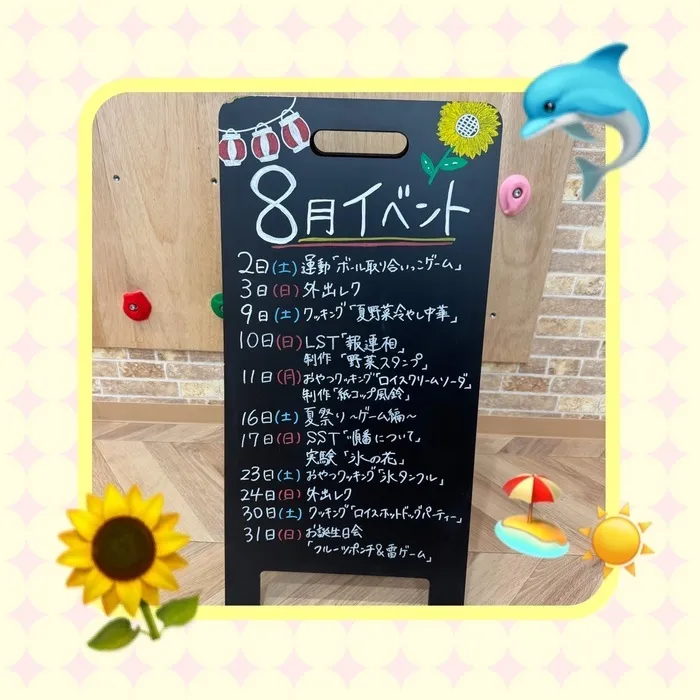 8月イベント
2日(土) 運動「ボール取り合いっこゲーム」
3日(日) 外出レク
9日(土) クッキング「夏野菜冷やし中華」
10日(日) LST「報連相」
制作「野菜スタンプ」
11日(月) おやつクッキング「ロイスクリームソーダ」
制作「紙コップ風鈴」
16日(土) 夏祭り〜ゲーム編〜
17日(日) SST「順番について」
実験「氷の花」
23日(土) おやつクッキング「氷タンフル」
24日(日) 外出レク
30日(土) クッキング「ロイスホットドッグパーティー」
31日(日) お誕生日会
「フルーツポンチ&雷ゲーム」